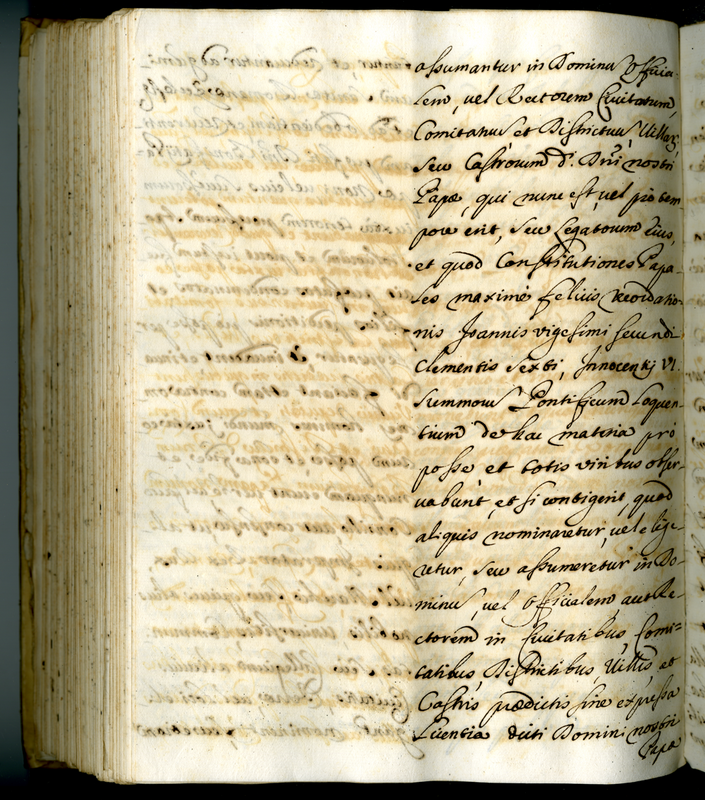 assumantur in Dominū Officia-
lem, vel Rectorem Civitatum,
Comitatuū et Districtuū Villarz,
seu Castrorum d.ⁱ Dn̄i nostri
Papæ, qui nunc est, vel pro tem
pore erit, seu Legatorum eius,
et quod Constitutiones Papa-
les maximè felicis recordatio-
nis Joannis vigesimi secundi
Clementis Sexti, Innocentij VI
Summorū Pontificum loquen-
tium de hac materia pro
posse et totis viribus obser-
vabunt, et si contigerit, quod
aliquis nominaretur, vel elige-
retur, seu assumeretur in Do-
minū, vel Officialem, aut Re-
ctorem in Civitatibus, Comi=
tatibus, Districtibus, Villis et
Castris prædictis sine expressa
Licentia dicti Domini nostri
Papæ